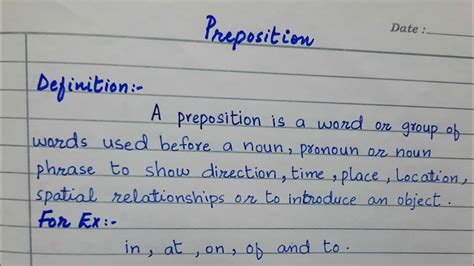 Preposition
Date :
Definition:-
A preposition is a word or group of
words used before a noun, pronoun or noun
phrase to show direction, time, place, location,
spatial relationships or to introduce an object.
For Ex:-
in, at, on, of and to.